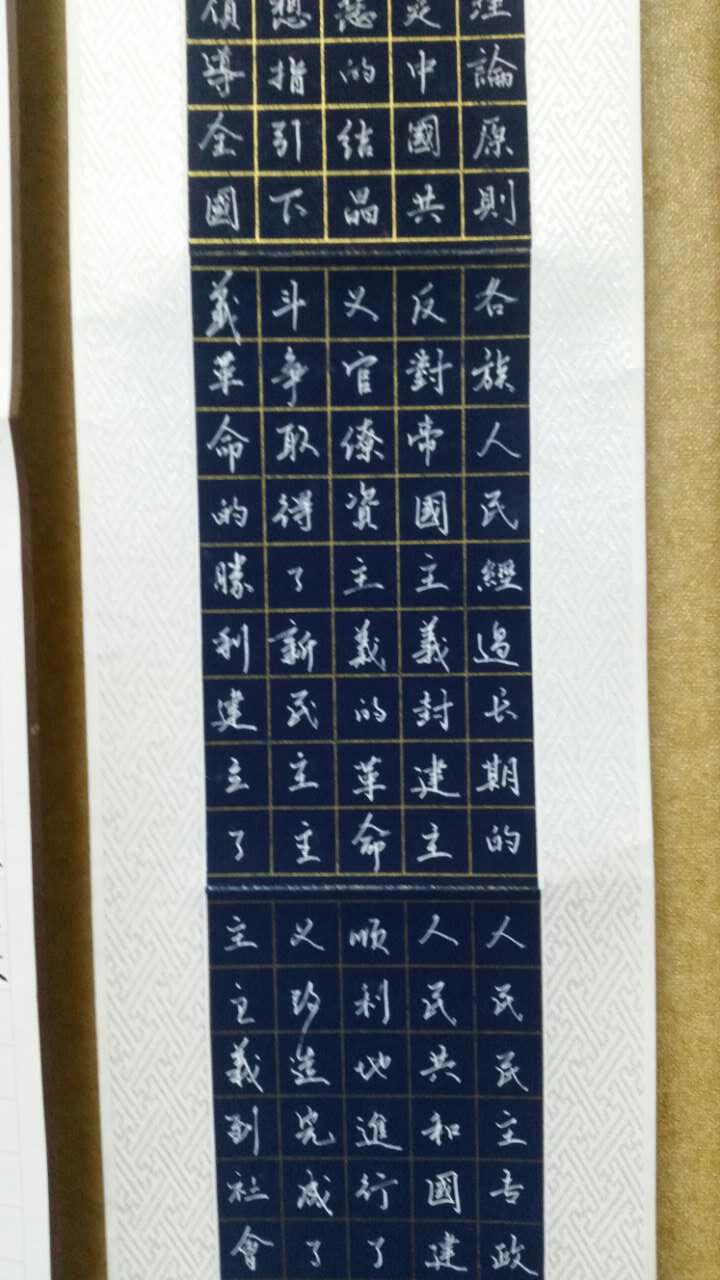 理論原則
是中國共
慧的結晶
想指引下
領導全國
各族人民經過长期的
反對帝國主義封建主
义官僚資主義的革命
斗争取得了新民主主
義革命的勝利建立了
人民民主专政
人民共和國建
順利地進行了
义改造完成了
主主義到社會